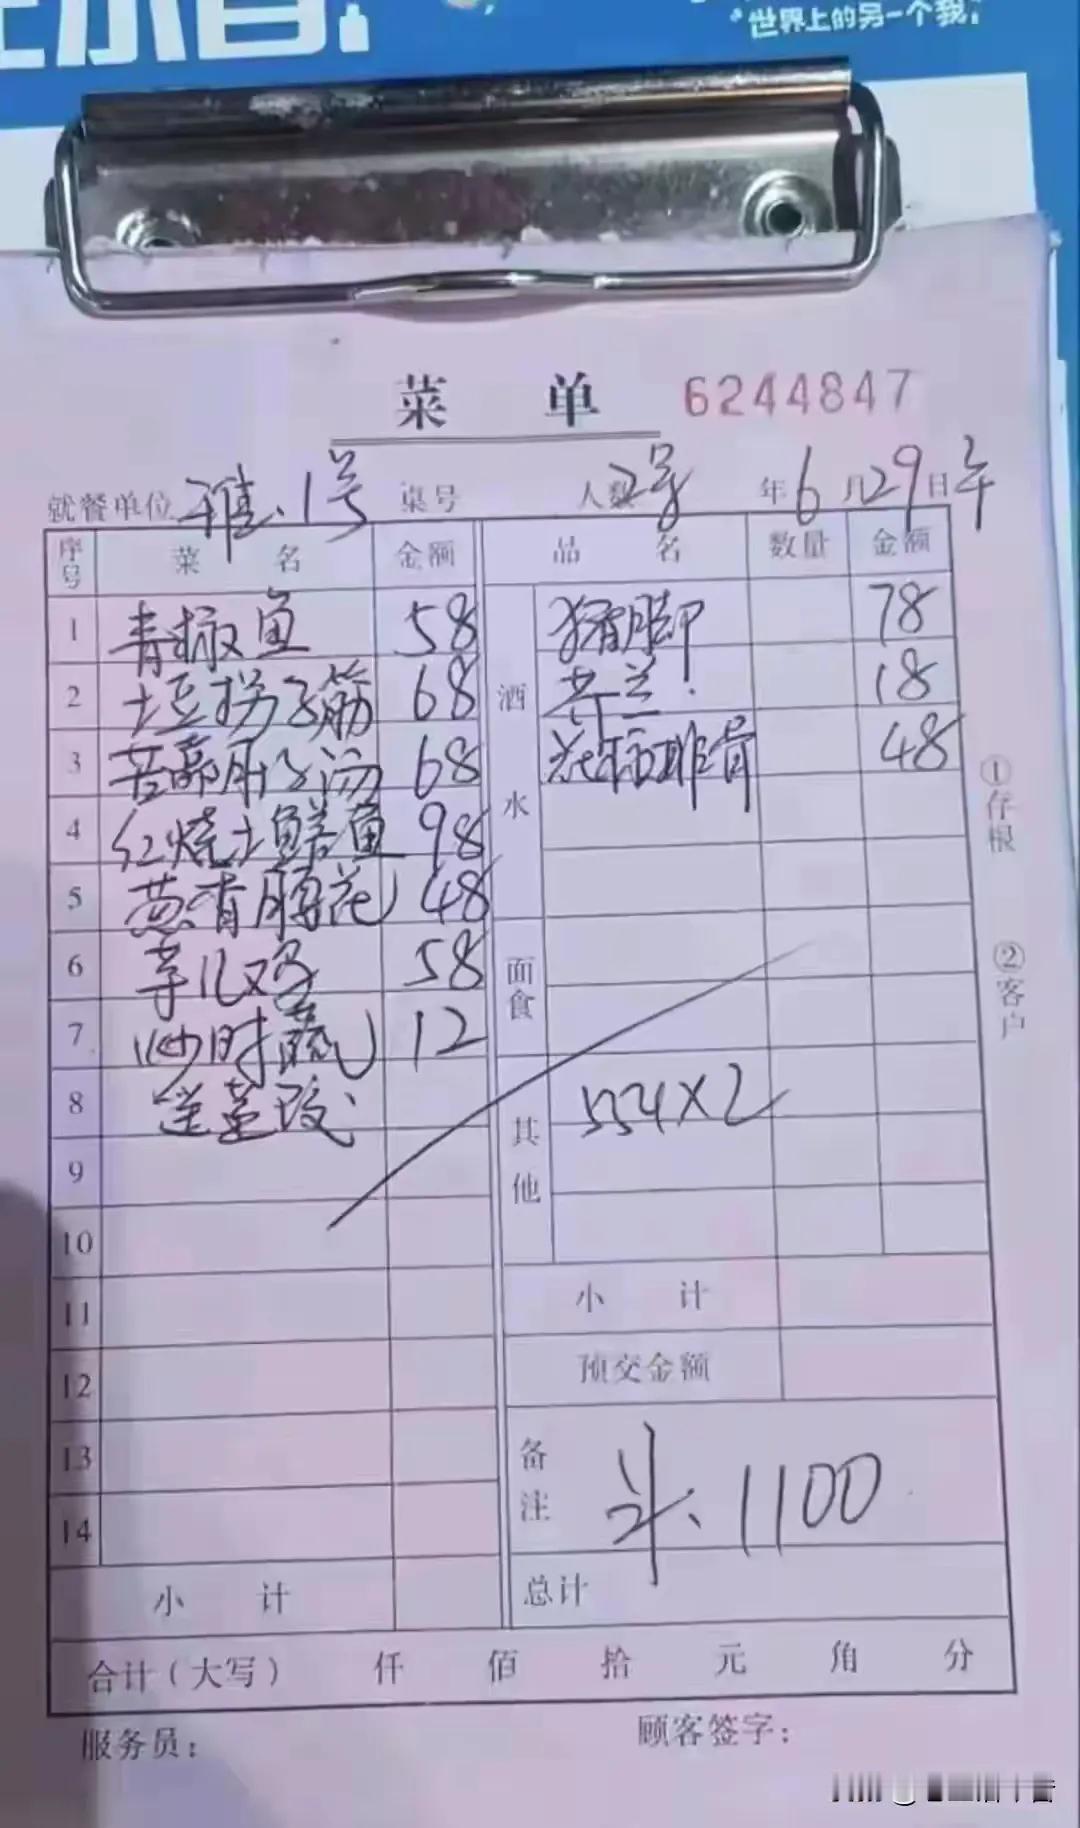 世界上的另一个我。
菜 单 6244847
就餐单位 雅、1号 桌号 人数 2号 年 6 月 29 日 午
序号 菜 名 金额 品 名 数量 金额
1 青椒鱼 58 猪脚 78
2 土豆拐子筋 68 酒 芥兰 18
3 68 水 排骨 48
4 红烧土鳝鱼 98
5 葱香腰花 48
6 芋儿鸡 58 面食
7 炒时蔬 12
8 其他 554×2
9
10
11 小 计
12 预交金额
13 备注 斗、1100
14
小 计 总计
合计（大写） 仟 佰 拾 元 角 分
服务员： 顾客签字：
①存根
②客户